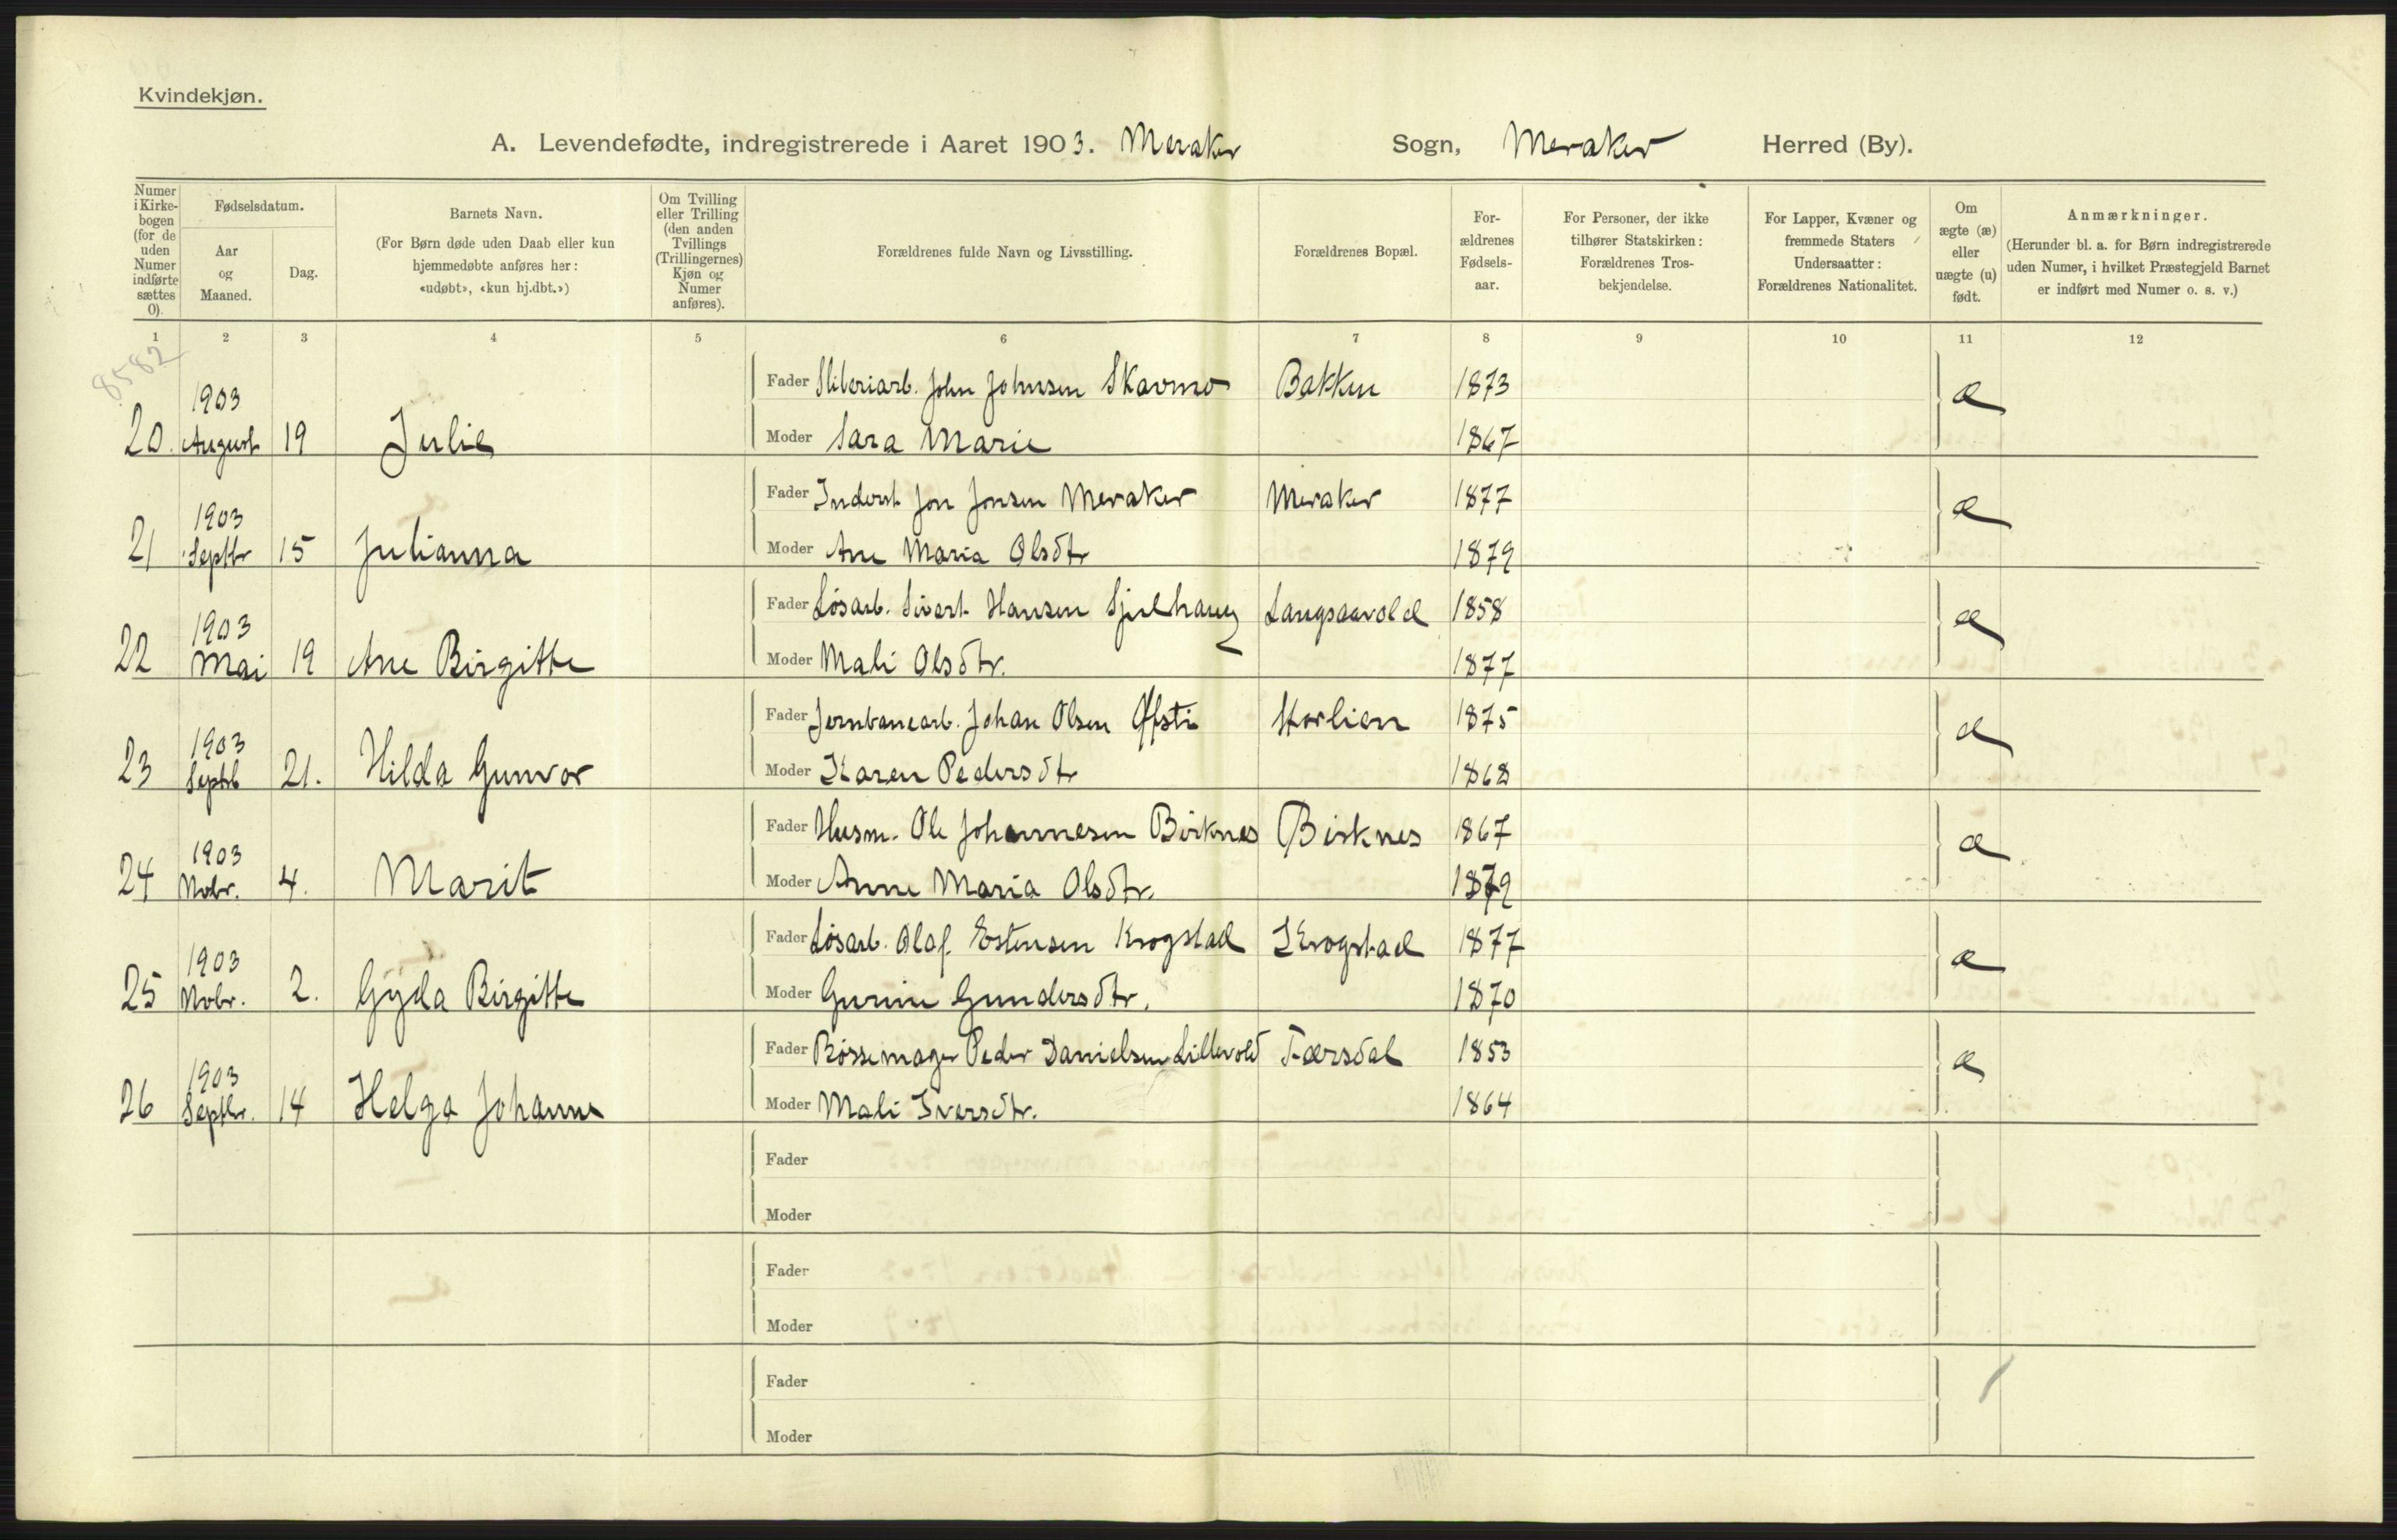 Kvindekjøn.
A. Levendefødte, indregistrerede i Aaret 1903. Meraker Sogn, Meraker Herred (By).
Numer i Kirke-bogen (for de uden Numer indførte sættes 0).
Fødselsdatum.
Aar og Maaned.
Dag.
Barnets Navn.
(For Børn døde uden Daab eller kun
hjemmedøbte anføres her:
«udøbt», «kun hj.dbt.»)
Om Tvilling
eller Trilling
(den anden
Tvillings
(Trillingernes)
Kjøn og
Numer
anføres).
Forældrenes fulde Navn og Livsstilling.
Forældrenes Bopæl.
For-
ældrenes
Fødsels-
aar.
For Personer, der ikke
tilhører Statskirken:
Forældrenes Tros-
bekjendelse.
For Lapper, Kvæner og
fremmede Staters
Undersaatter:
Forældrenes Nationalitet.
Om
ægte (æ)
eller
uægte (u)
født.
Anmærkninger.
(Herunder bl. a. for Børn indregistrerede
uden Numer, i hvilket Præstegjeld Barnet
er indført med Numer o. s. v.)
1 2 3 4 5 6 7 8 9 10 11 12
8582
Fader Sliberiarb. John Johnsen Skavmo Bakken 1873
20. 1903 August 19 Julie Moder Sara Marie 1867 æ
Fader Inderst Jon Jonsen Meraker Meraker 1877
21 1903 Septbr 15 Julianna Moder Ane Maria Olsdtr 1879 æ
Fader Løsarb. Sivert Hansen Sjulhaug Langsaavold 1858
22 1903 Mai 19 Ane Birgitte Moder Mali Olsdtr. 1877 æ
Fader Jernbanearb. Johan Olsen Øfsti Storlien 1875
23 1903 Septb 21. Hilda Gunvor Moder Karen Pedersdtr 1868 æ
Fader Husm. Ole Johannesen Birknes Birknes 1867
24 1903 Novbr. 4. Marit Moder Anne Maria Olsdtr. 1879 æ
Fader Løsarb. Olaf Estensen Krogstad Krogstad 1877
25 1903 Novbr. 2. Gyda Birgitte Moder Gurine Gundersdtr. 1870 æ
Fader Børsemager Peder Danielsen Lillevold Færsdal 1853
26 1903 Septbr. 14 Helga Johanne Moder Mali Iversdtr. 1864 æ
Fader
Moder
Fader
Moder
Fader
Moder